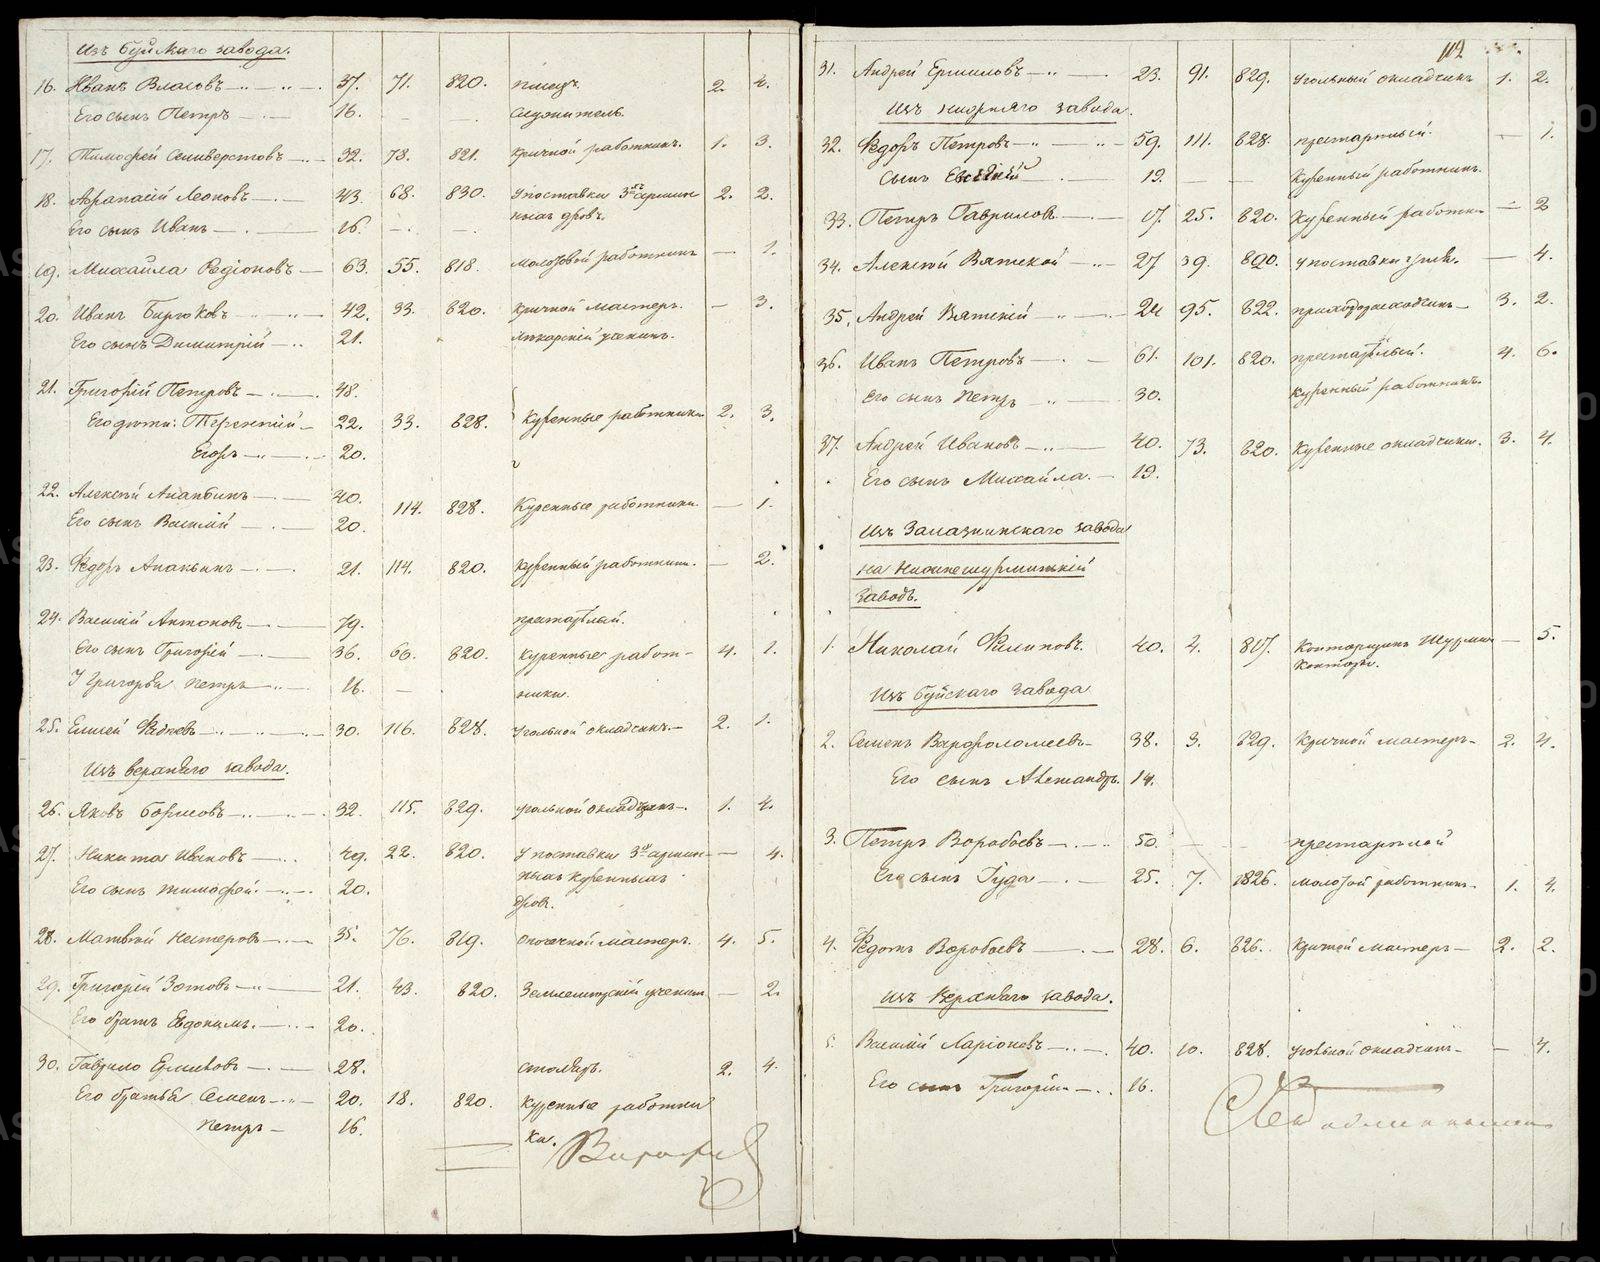 Изъ буйскаго завода.
16. Иванъ Власовъ 37. 71. 820. писецъ. 2. 4.
Его сынъ Петръ 16. служитель.
17. Тимофей Селиверстовъ 32. 78. 821. кричной работникъ. 1. 3.
18. Афанасій Леоновъ 43. 68. 830. у поставки 3хъ аршин 2. 2.
ныхъ дровъ.
Его сынъ Иванъ 16.
19. Михайла Родіоновъ 63. 55. 818. молотовой работникъ 1.
20. Иванъ Бирюковъ 42. 33. 820. кричной мастеръ. 3.
Его сынъ Димитрій 21. лекарскій ученикъ.
21. Григорій Петровъ 48.
Его дѣти: Терентій 22. 33. 828. Куренные работники 2. 3.
Егоръ 20.
22. Алексѣй 40. 114. 828. Куренные работники 1.
Его сынъ Василій 20.
23. Федоръ 21. 114. 820. Куренный работникъ. 2.
24. Василій Антоновъ 79. престарѣлый.
Его сынъ Григорій 36. 66. 820. куренные работ- 4. 1.
У Григорья Петръ 16. ники.
25. Елисей Фадѣевъ 30. 116. 828. угольной окладчикъ. 2. 1.
Изъ верхняго завода.
26. Яковъ Борисовъ 32. 115. 829. угольной окладчикъ. 1. 4.
27. Никита Ивановъ 49. 22. 820. у поставки 3х аршин- 4.
Его сынъ Тимофей. 20. ныхъ куренныхъ
дровъ.
28. Матвѣй Нестеровъ 35. 76. 819. мастеръ. 4. 5.
29. Григорій Зотовъ 21. 43. 820. Землемерскій ученик 2.
Его братъ Евдокимъ. 20.
30. Гаврило Ермиловъ 28. столяръ. 2. 4.
Его братья Семенъ 20. 18. 820. куренные работни
Петръ 16. ки.
112
31. Андрей Ермиловъ 23. 91. 829. угольный окладчикъ 1. 2.
Изъ нижняго завода.
32. Федоръ Петровъ 59. 111. 828. престарѣлый. 1.
сынъ 19. Куренный работникъ.
33. Петръ Гавриловъ 17. 25. 820. Куренный работн. 2
34. Алексѣй Вятской 27 39. 820. у поставки угля. 4.
35. Андрей Вятскій 24 95. 822. приходорасходчикъ 3. 2.
36. Иванъ Петровъ 61. 101. 820. престарѣлый. 4. 6.
Его сынъ Петръ 30. Куренный работникъ.
37. Андрей Ивановъ 40. 73. 820. Куренные окладчики. 3. 4.
Его сынъ Михайла. 19.
Изъ Залазнинскаго завода
на Нижнешурминскій
Заводъ.
1. Николай Филиповъ. 40. 2. 817. Конторщикъ Шурмин 5.
Конторы.
Изъ буйскаго завода
2. Семенъ Варфоломеевъ 38. 3. 829. Кричной мастеръ 2. 4.
Его сынъ Александръ. 14.
3. Петръ Воробьевъ 50. престарѣлой
Его сынъ Гуда 25. 7. 1826. молотой работникъ. 1. 4.
4. Федотъ Воробьевъ 28. 6. 826. Кричной мастеръ 2. 2.
Изъ Верхняго завода.
5. Василій Ларіоновъ 40. 10. 828. угольной окладчикъ 4.
Его сынъ Григорій 16.